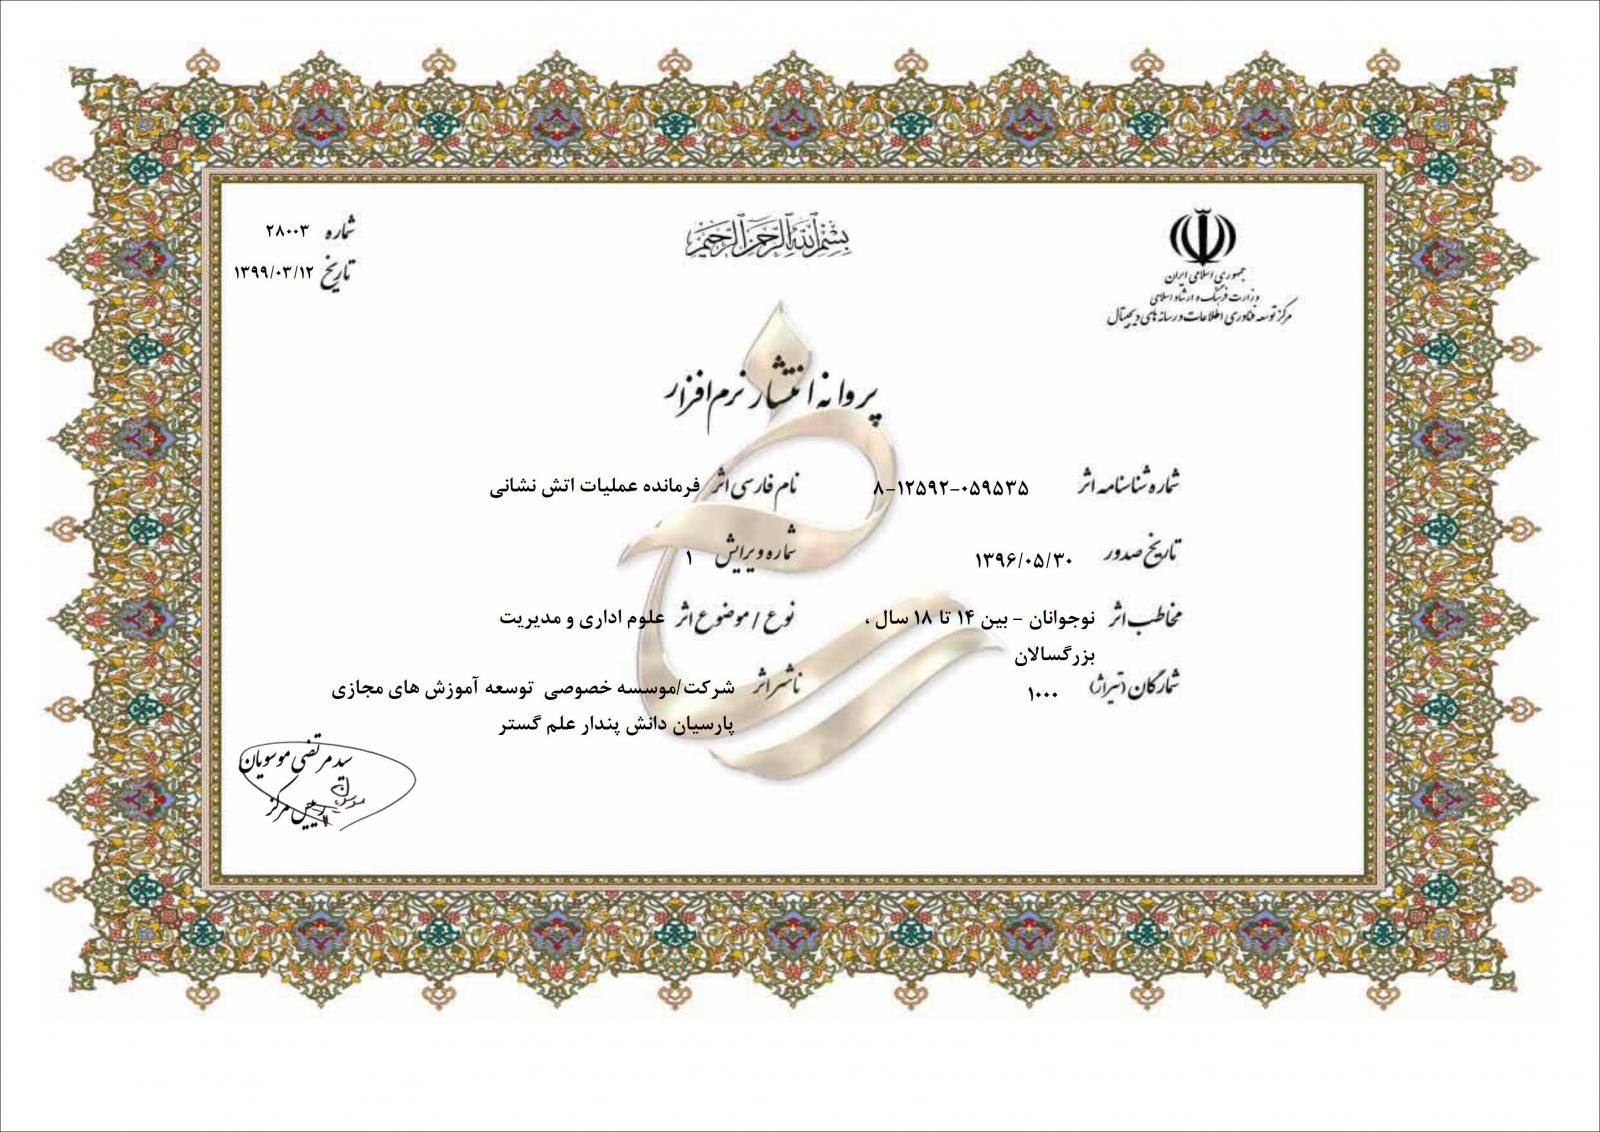 بسم الله الرحمن الرحیم
جمهوری اسلامی ایران
وزارت فرهنگ و ارشاد اسلامی
مرکز توسعه فناوری اطلاعات و رسانه های دیجیتال
شماره ۲۸۰۰۳
تاریخ ۱۳۹۹/۰۳/۱۲
پروانه انتشار نرم افزار
شماره شناسنامه اثر ۸-۱۲۵۹۲-۰۵۹۵۳۵
نام فارسی اثر فرمانده عملیات اتش نشانی
تاریخ صدور ۱۳۹۶/۰۵/۳۰
شماره ویرایش ۱
مخاطب اثر نوجوانان - بین ۱۴ تا ۱۸ سال ،
بزرگسالان
نوع / موضوع اثر علوم اداری و مدیریت
شمارگان (تیراژ) ۱۰۰۰
ناشر اثر شرکت/موسسه خصوصی توسعه آموزش های مجازی
پارسیان دانش پندار علم گستر
سید مرتضی موسویان
رییس مرکز